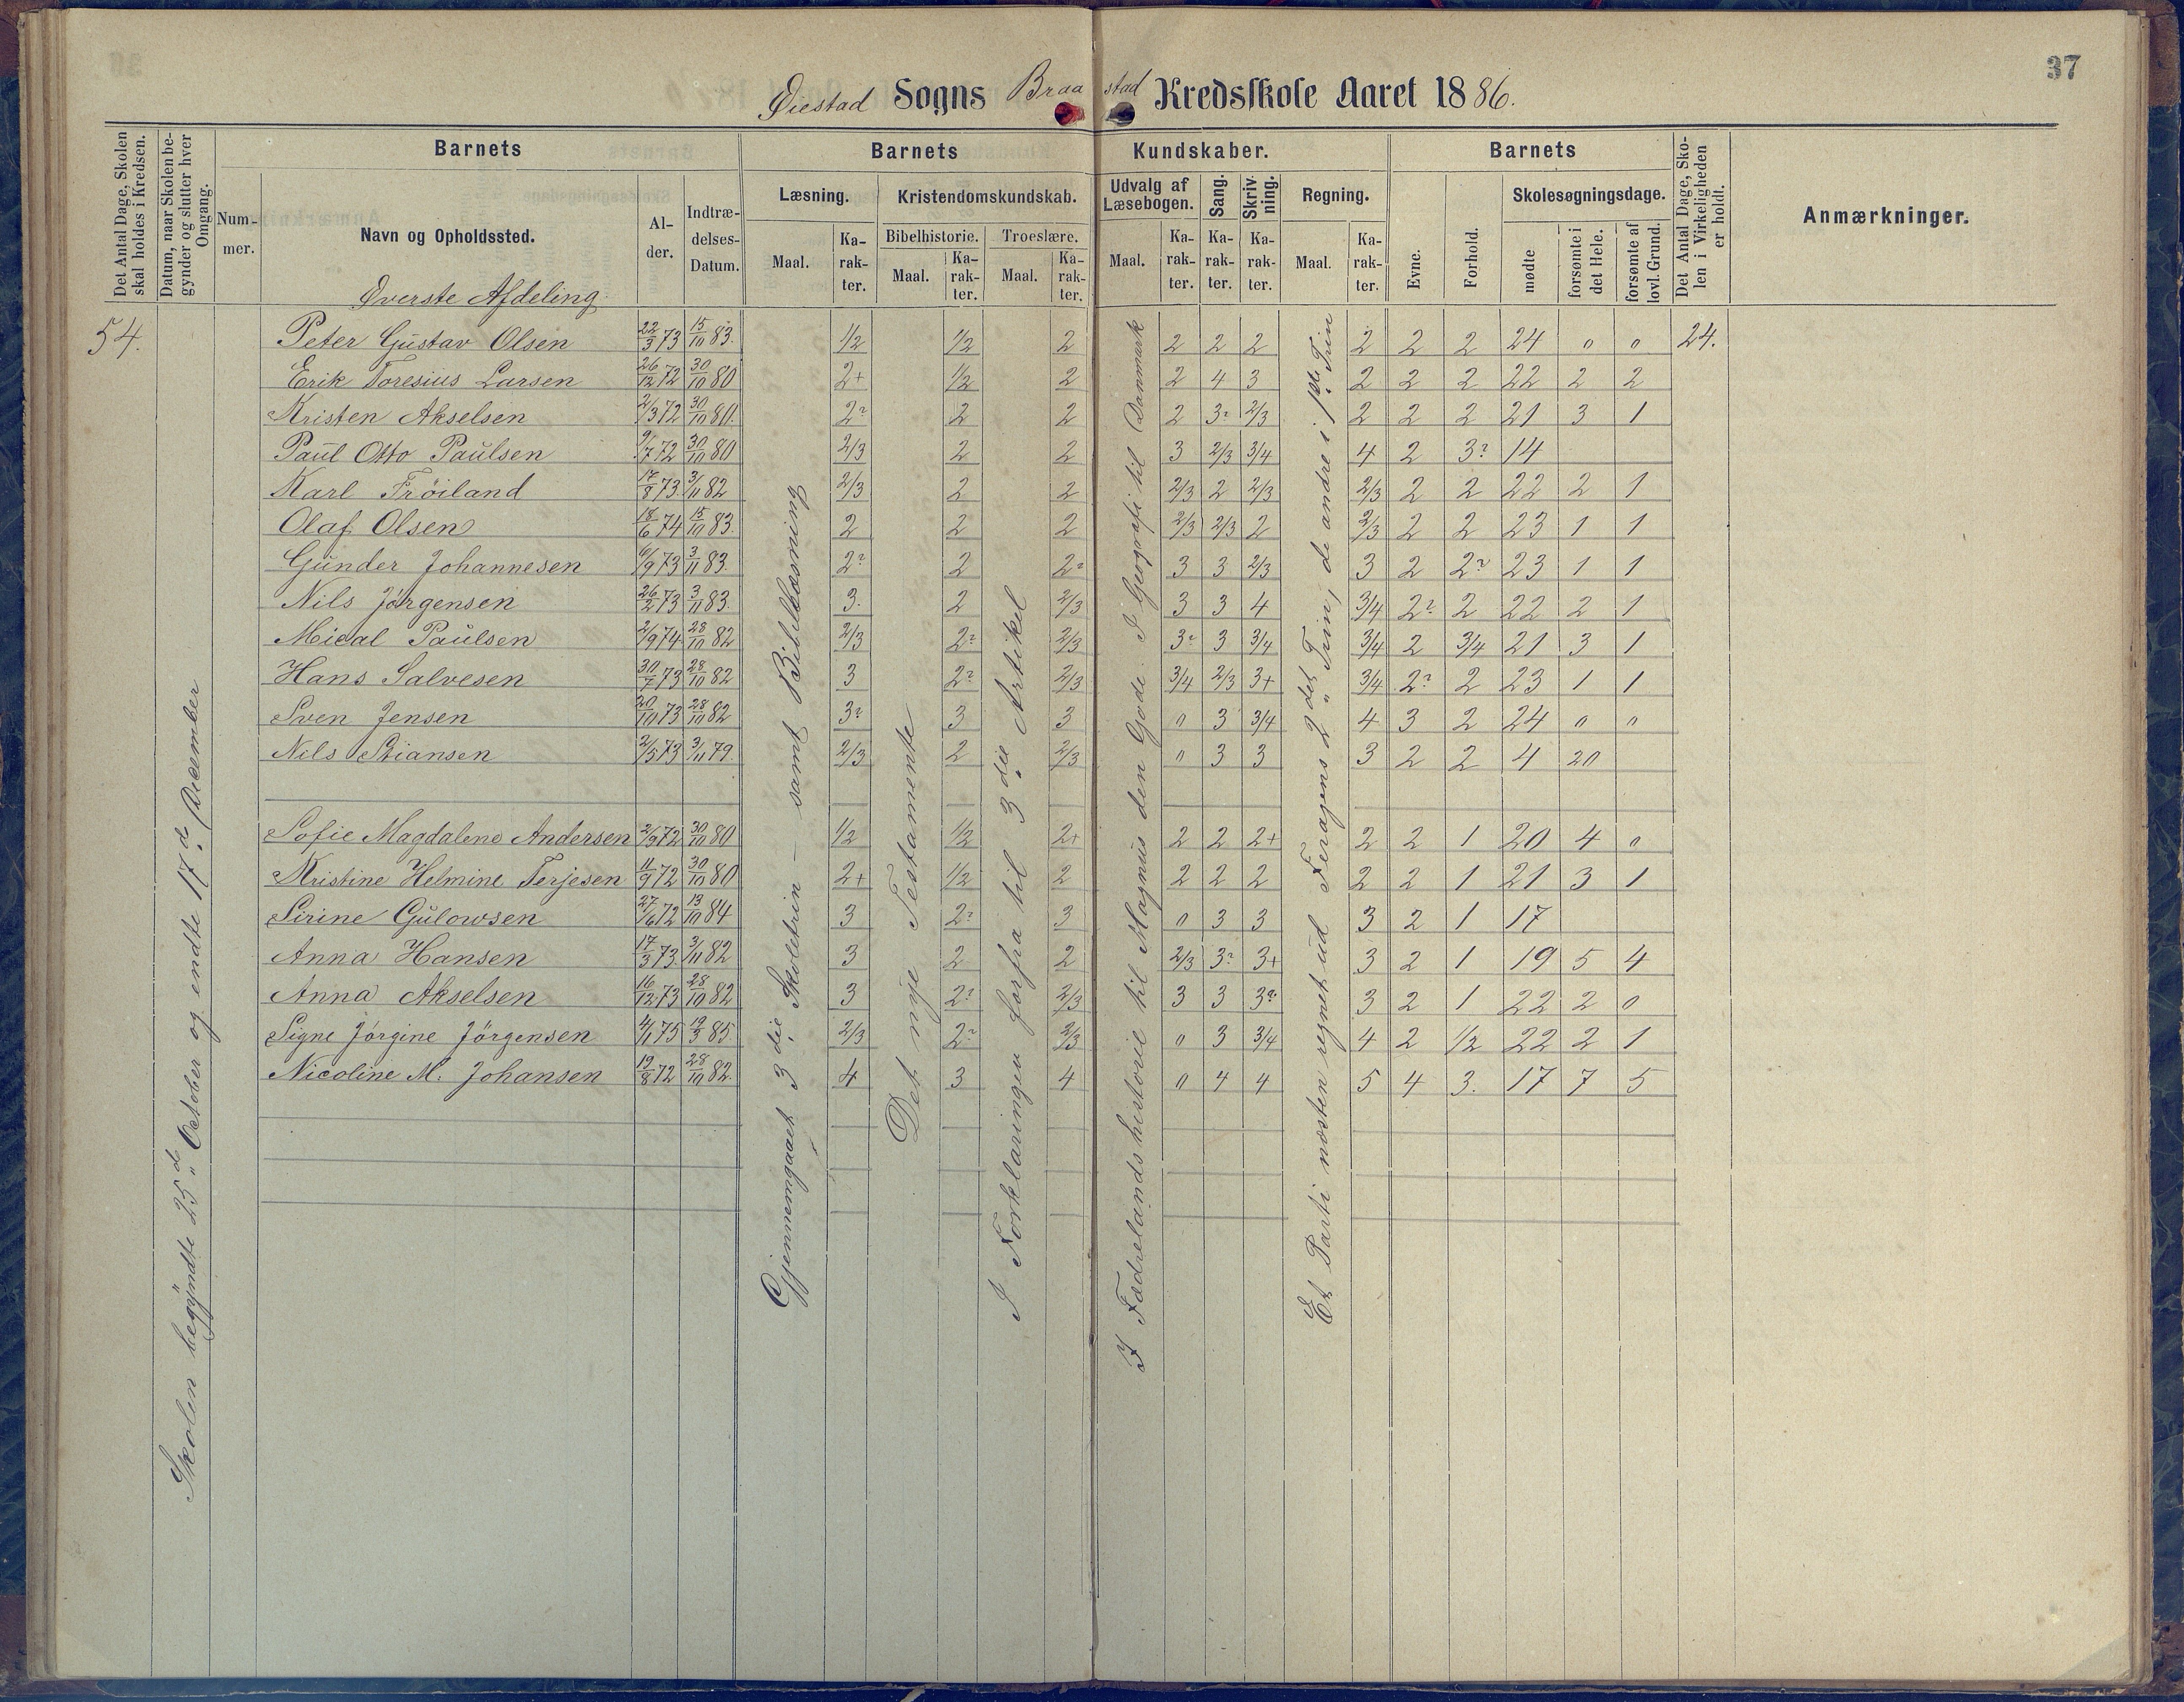 37
Øiestad Sogns Braastad Kredsskole Aaret 1886.
Det Antal Dage, Skolen skal holdes i Kredsen.
Datum, naar Skolen begynder og slutter hver Omgang.
Barnets
Barnets Kundskaber.
Barnets
Det Antal Dage, Skolen i Virkeligheden er holdt.
Anmærkninger.
Nummer.
Navn og Opholdssted.
Alder.
Indtrædelses-Datum.
Læsning.
Kristendomskundskab.
Udvalg af Læsebogen.
Sang.
Skrivning.
Regning.
Evne.
Forhold.
Skolesøgningsdage.
Bibelhistorie.
Troeslære.
Maal. Karakter. Maal. Karakter. Maal. Karakter. Maal. Karakter. Karakter. Karakter. Maal. Karakter.
mødte
forsømte i det Hele.
forsømte af lovl. Grund.
Øverste Afdeling.
54. Peter Gustav Olsen 22/3 73 15/10 83. 1/2 1/2 2 2 2 2 2 2 2 24 " " 24.
Erik Toresius Larsen 26/12 72 30/10 80 2+ 1/2 2 2 4 3 2 2 2 22 2 2
Kristen Akselsen 2/3 72 30/10 80. 2? 2 2 2 3? 2/3 2 2 2 21 3 1
Paul Otto Paulsen 9/7 72 30/10 80 2/3 2 2 3 2/3 3/4 4 2 3? 14
Karl Frøiland 17/8 73 3/11 82 2/3 2 2 2/3 2 2/3 2/3 2 2 22 2 1
Olaf Olsen 18/6 74 15/10 83. 2 2 2 2/3 2/3 2 2/3 2 2 23 1 1
Gunder Johannesen 6/9 73 3/11 83. 2? 2 2? 3 3 2/3 3 2 2? 23 1 1
Nils Jørgensen 26/2 73 3/11 83. 3. 2 2/3 3 3 4 3/4 2? 2 22 2 1
Mical Paulsen 2/9 74 28/10 82 2/3 2? 2/3 3? 3 3/4 3/4 2 3/4 21 3 1
Hans Salvesen 30/7 73 28/10 82 3 2? 2/3 3/4 2/3 3+ 3/4 2? 2 23 1 1
Sven Jensen 20/10 73 28/10 82 3? 3 3 " 3 3/4 4 3 2 24 " "
Nils Stiansen 2/5 73 3/11 79. 2/3 2 2/3 " 3 3 3 2 2 4 20
Sofie Magdalene Andersen 2/9 72 30/10 80 1/2 1/2 2+ 2 2 2+ 2 2 1 20 4 0
Kristine Helmine Terjesen 11/9 72 30/10 80 2+ 1/2 2 2 2 2 2 2 1 21 3 1
Sirine Gulowsen 27/6 72 13/10 84 3 2? 3 " 3 3 3 2 1 17
Anna Hansen 17/3 73 3/11 82 3 2 2 2/3 3? 3+ 3 2 1 19 5 4
Anna Akselsen 16/12 73 28/10 82 3 2? 2/3 3 3 3? 3 2 1 22 2 0
Signe Jørgine Jörgensen 4/1 75 19/3 85. 2/3 2? 2/3 " 3 3/4 4 2 1/2 22 2 1
Nicoline M. Johansen 19/8 72 28/10 82. 4 3 4 " 4 4 5 4 3. 17 7 5
Skolen begyndte 25de October og endte 17de December
Gjennemgaaet 3die Skoletrin – samt Bibellæsning
Det nye Testamente
I Forklaringen forfra til 3die Artikel
I Fædrelandshistorie til Magnus den Gode. I Geografi til Danmark
Et Parti næsten regnet ud Feragens 2det Trin, de andre i 1ste Trin